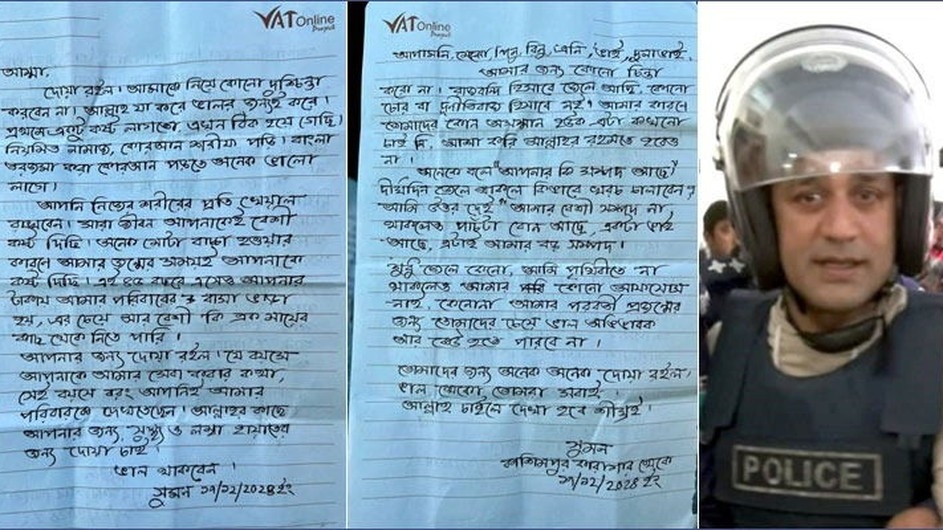 VAT Online
Project
আম্মা,
দোয়া রইল। আমাকে নিয়ে কোনো দুশ্চিন্তা
করবেন না। আল্লাহ যা করে ভালর জন্যই করে।
প্রথমে একটু কষ্ট লাগতো, এখন ঠিক হয়ে গেছি।
নিয়মিত নামাজ, কোরআন শরীফ পড়ি। বাংলা
তরজমা করা কোরআন পড়তে অনেক ভালো
লাগে।
আপনি নিজের শরীরের প্রতি খেয়াল
রাখবেন। সারা জীবন আপনাকেই বেশী
কষ্ট দিছি। অনেক মোটা বাচ্চা হওয়ার
কারণে আমার জন্মের সময়ই আপনাকে
কষ্ট দিছি। এই ৪৫ বছরে এসেও আপনার
টাকায় আমার পরিবারের বাসা ভাড়া
হয়, এর চেয়ে আর বেশী কি এক মায়ের
কাছ থেকে নিতে পারি।
আপনার জন্য দোয়া রইল। যে বয়সে
আপনাকে আমার সেবা করার কথা,
সেই বয়সে বরং আপনিই আমার
পরিবারকে দেখতেছেন। আল্লাহর কাছে
আপনার জন্য, সুস্থ্য ও লম্বা হায়াতের
জন্য দোয়া চাই।
ভাল থাকবেন।
সুমন ২০২৪ ইং
VAT Online
Project
আপাসনি, মেঝো, শিলু, বিলু, এনি, ভাই, দুলাভাই,
আমার জন্য কোনো চিন্তা
করো না। রাজবন্দি হিসাবে জেলে আছি, কোনো
চোর বা দুর্নীতিবাজ হিসাবে নই। আমার কারণে
তোমাদের কোন অসম্মান হউক এটা কখনো
চাই নি, আশা করি আল্লাহর রহমতে হবেও
না।
অনেকে বলে "আপনার কি সম্পদ আছে?
দীর্ঘদিন জেলে থাকলে কিভাবে খরচ চালাবেন?"
আমি উত্তর দেই "আমার বেশী সম্পদ না
থাকলেও পাঁচটা বোন আছে, একটা ভাই
আছে, এটাই আমার বড় সম্পদ।
শুধু জেলে কেনো, আমি পৃথিবীতে না
থাকলেও আমার কোনো আফসোস
নাই। কেনোনা আমার পরবর্তী প্রজন্মের
জন্য তোমাদের চেয়ে ভাল অভিভাবক
আর কেউ হতে পারবে না।
তোমাদের জন্য অনেক অনেক দোয়া রইল।
ভাল থেকো তোমরা সবাই।
আল্লাহ চাইলে দেখা হবে শীঘ্রই।
সুমন
কাশিমপুর কারাগার থেকে
২০২৪ ইং
POLICE